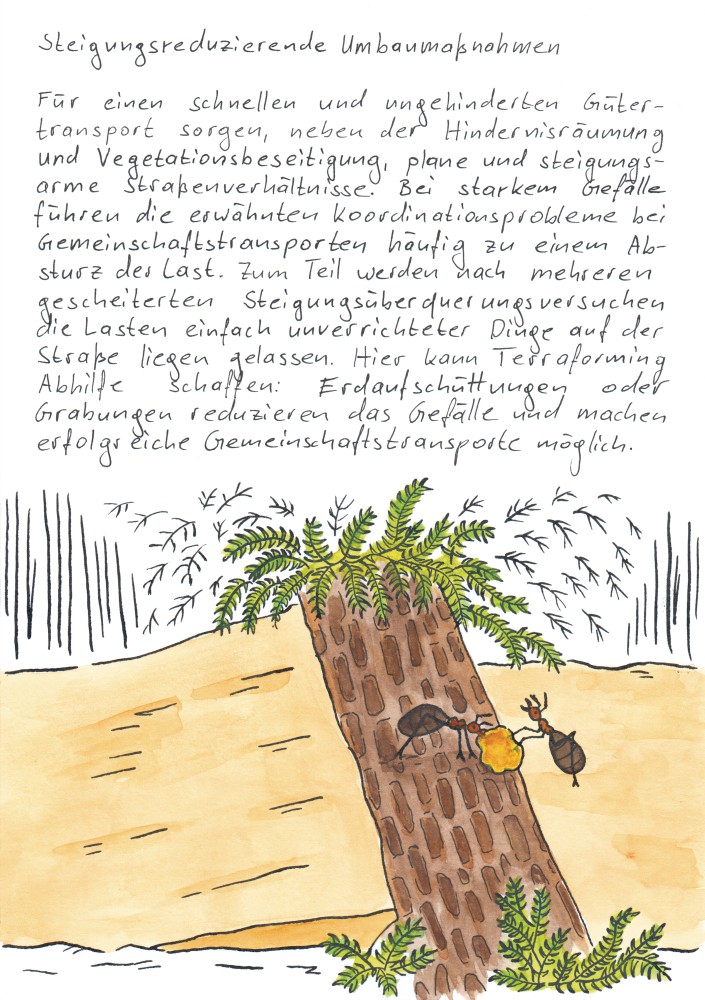 Steigungsreduzierende Umbaumaßnahmen
Für einen schnellen und ungehinderten Güter-
transport sorgen, neben der Hindernisräumung
und Vegetationsbeseitigung, plane und steigungs-
arme Straßenverhältnisse. Bei starkem Gefälle
führen die erwähnten Koordinationsprobleme bei
Gemeinschaftstransporten häufig zu einem Ab-
sturz der Last. Zum Teil werden nach mehreren
gescheiterten Steigungsüberquerungsversuchen
die Lasten einfach unverrichteter Dinge auf der
Straße liegen gelassen. Hier kann Terraforming
Abhilfe schaffen: Erdaufschüttungen oder
Grabungen reduzieren das Gefälle und machen
erfolgreiche Gemeinschaftstransporte möglich.